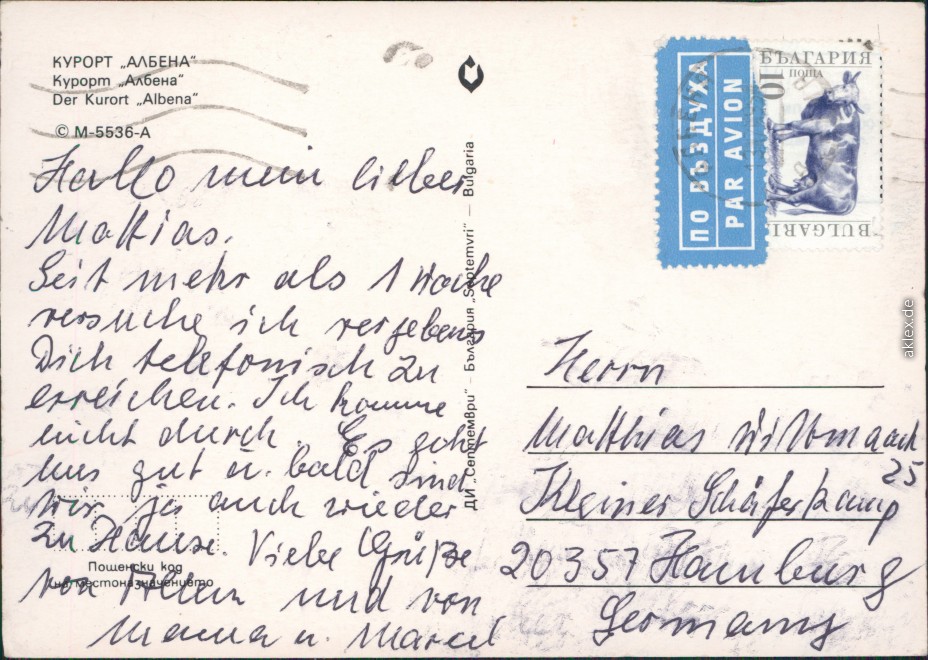 КУРОРТ „АЛБЕНА“
Курорт „Албена“
Der Kurort „Albena“
© М-5536-А
Hallo mein lieber
Mattias.
Seit mehr als 1 Woche
versuche ich vergebens
Dich telefonisch zu
erreichen. Ich komme
nicht durch. Es geht
uns gut u. bald sind
wir ja auch wieder
zu Hause. Viele Grüße
von und von
Mama u. Marcel
Пощенски код
на местоназначението
ДИ „Септември“ — България „Septemvri“ — Bulgaria
ПО ВЪЗДУХА
PAR AVION
БЪЛГАРИЯ
ПОЩА
10
BULGARIA
Herrn
Matthias
Kleiner Schäferkamp 25
20357 Hamburg
Germany
aklex.de